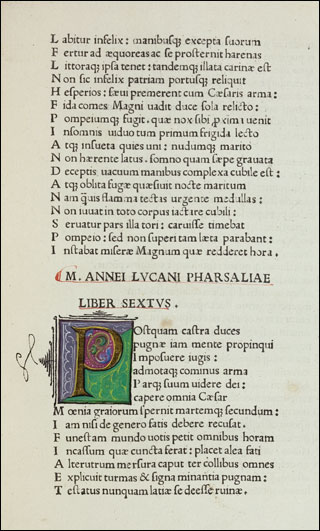 L abitur infelix: manibusq; excepta suorum
F ertur ad æquoreas ac se prosternit harenas
L ittoraq; ipsa tenet: tandemq; illata carinæ est
N on sic infelix patriam portusq; reliquit
H esperios: sæui premerent cum Cæsaris arma:
F ida comes Magni uadit duce sola relicto:
P ompeiumq; fugit. quæ nox sibi ꝓxima uenit
I nsomnis uiduo tum primum frigida lecto
A tq; insueta quies uni: nudumq; marito
N on hærente latus. somno quam sæpe grauata
D eceptis uacuum manibus complexa cubile est:
A tq; oblita fugæ quæsiuit nocte maritum
N am q̃uis flamma tectas urgente medullas:
N on iuuat in toto corpus iactare cubili:
S eruatur pars illa tori: caruisse timebat
P ompeio: sed non superi tam læta parabant:
I nstabat miseræ Magnum quæ redderet hora.
M. ANNEI LVCANI PHARSALIAE
LIBER SEXTVS.
P Ostquam castra duces
pugnæ iam mente propinqui
I mposuere iugis:
admotaq; cominus arma
P arq; suum uidere dei:
capere omnia Cæsar
M œnia graiorum spernit martemq; secundum:
I am nisi de genero fatis debere recusat.
F unestam mundo uotis petit omnibus horam
I ncassum quæ cuncta ferat: placet alea fati
A lterutrum mersura caput ter collibus omnes
E xplicuit turmas & signa minantia pugnam:
T estatus nunquam latiæ se deesse ruinæ.